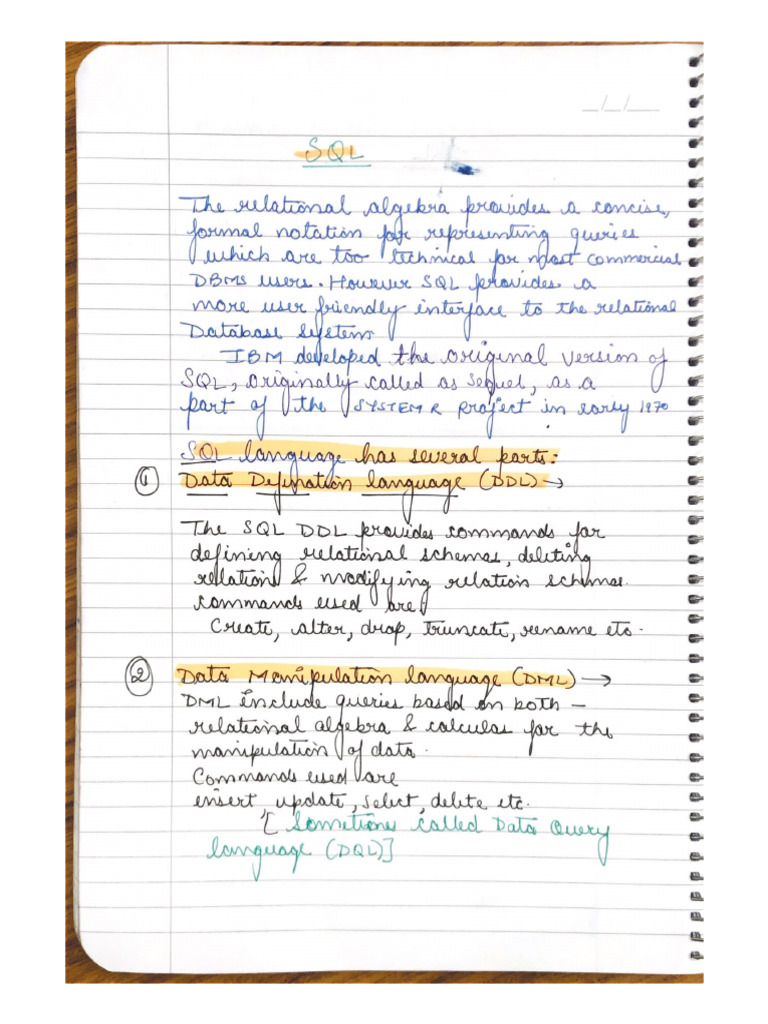 _/_/___
SQL
The relational algebra provides a concise,
formal notation for representing queries
which are too technical for most commercial
DBMS users. However SQL provides a
more user friendly interface to the relational
Database System.
IBM developed the original version of
SQL, originally called as sequel, as a
part of the SYSTEM R project in early 1970
SQL language has several parts:
① Data Defination language (DDL) →
The SQL DDL provides commands for
defining relational schemas, deleting
relations & modifying relation schemas.
commands used are
Create, alter, drop, truncate, rename etc.
② Data Manipulation language (DML) →
DML include queries based on both –
relational algebra & calculas for the
manipulation of data.
Commands used are
insert, update, select, delete etc.
[Sometimes called Data Query
language (DQL)]